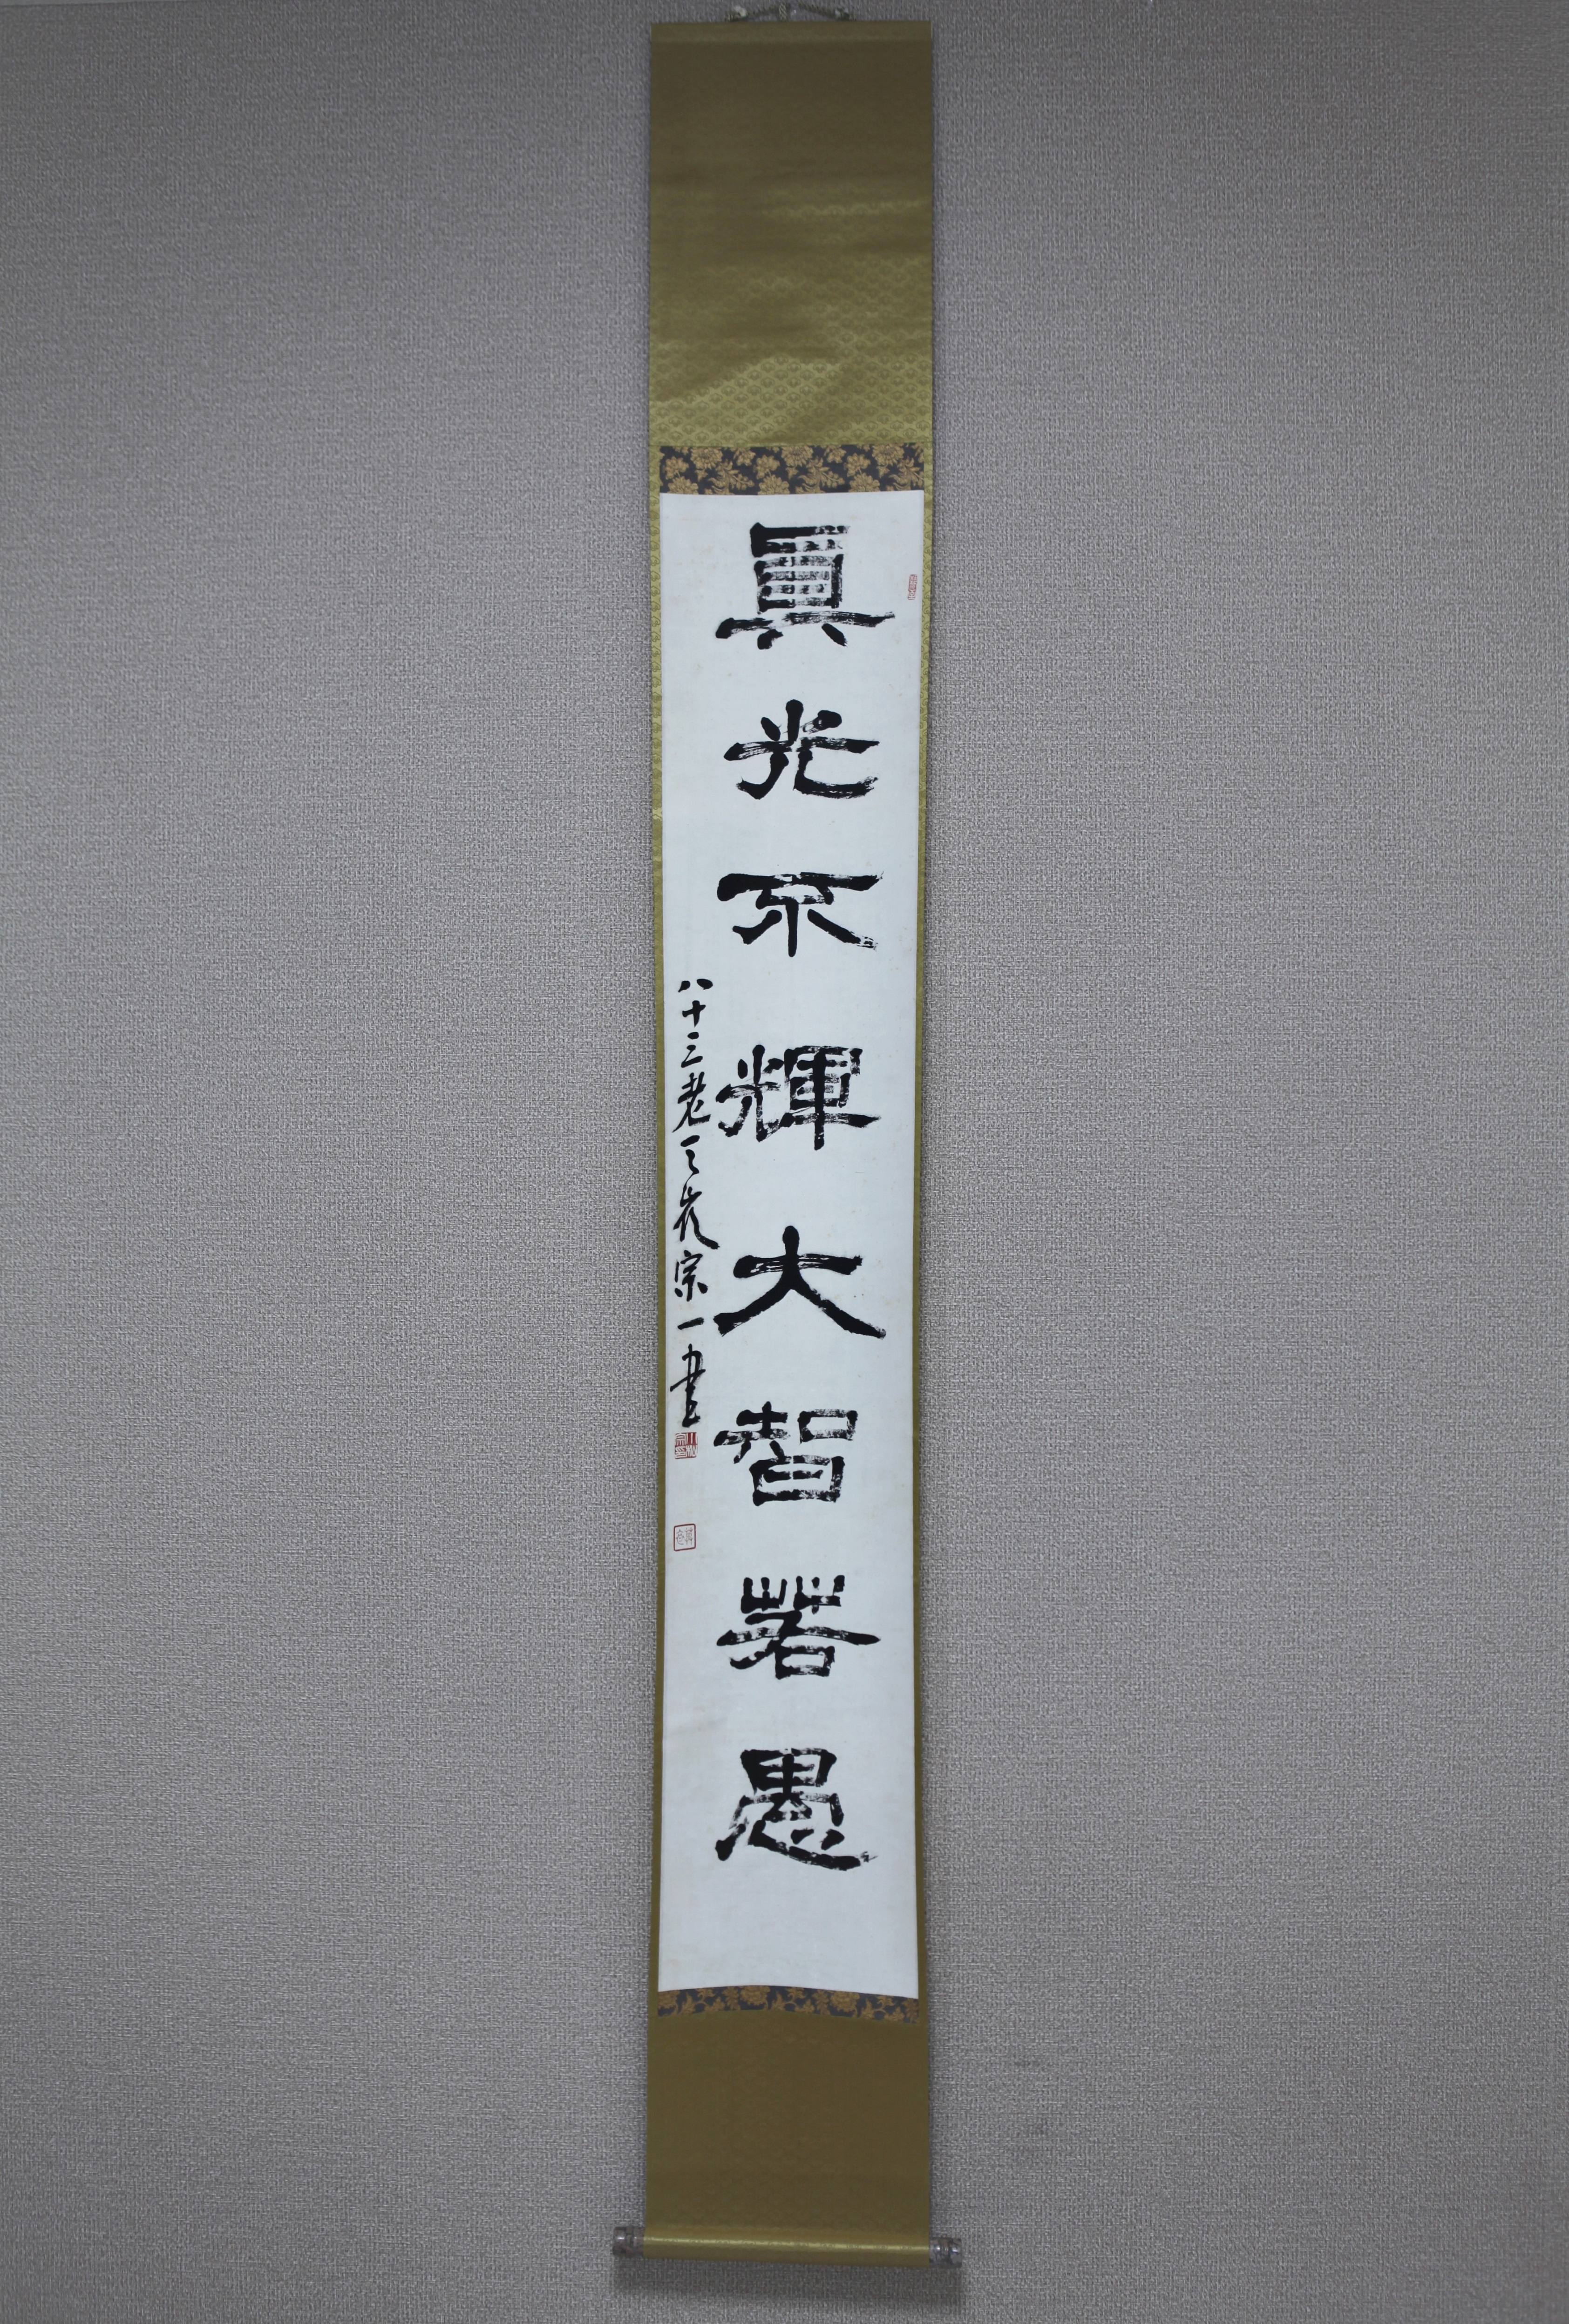 眞光不輝大智若愚
八十三老 宗一書